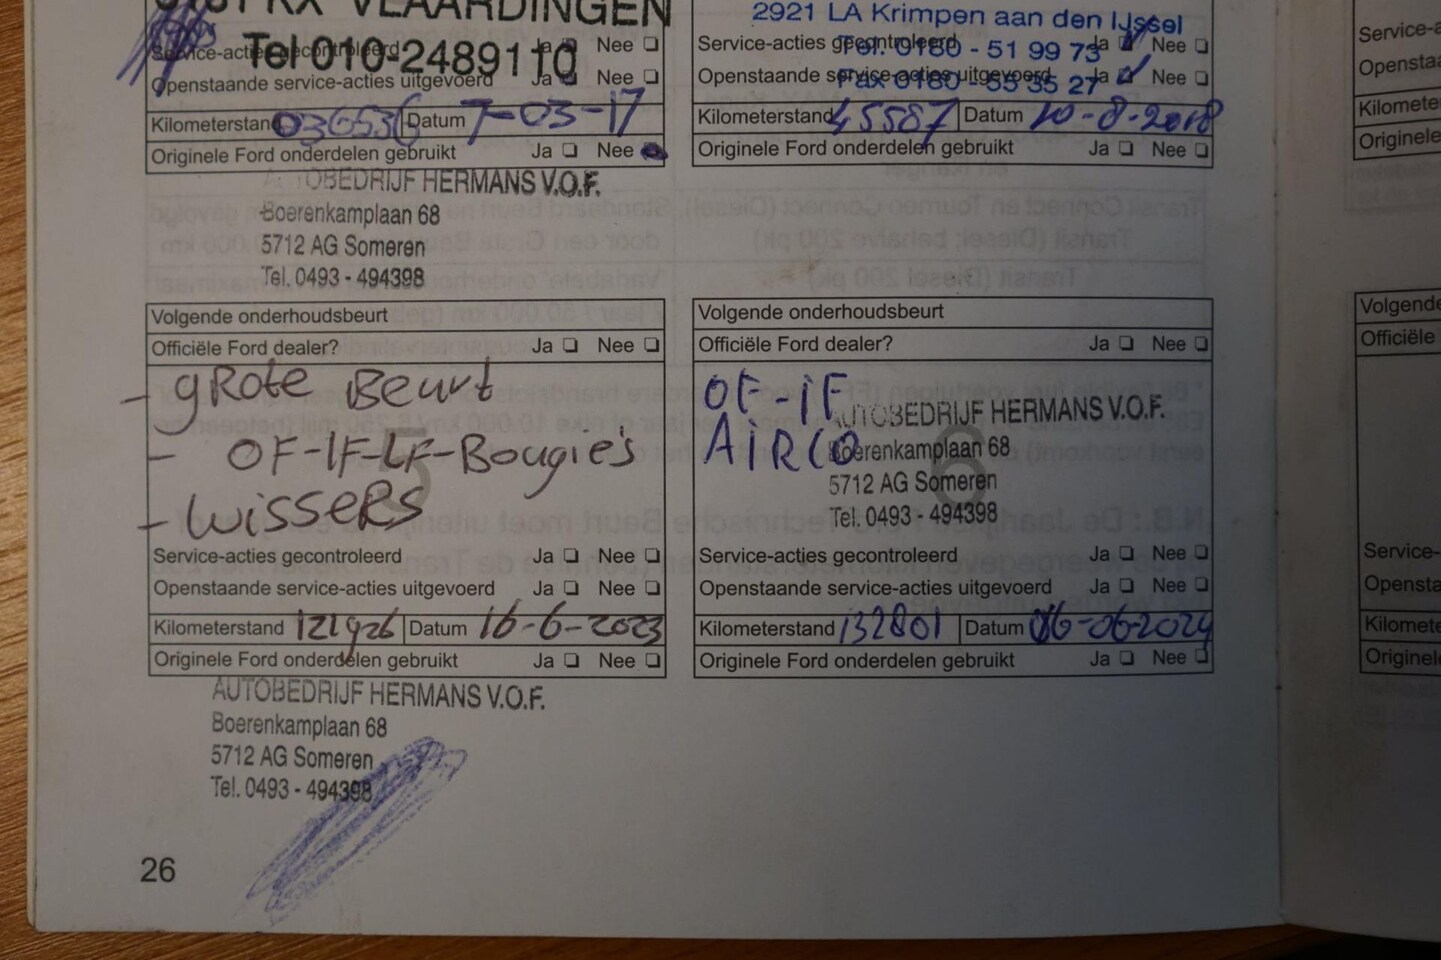 VLAARDINGEN
Tel 010-2489110
Service-acties gecontroleerd Ja Nee
Openstaande service-acties uitgevoerd Ja Nee
Kilometerstand 036536 Datum 7-03-17
Originele Ford onderdelen gebruikt Ja Nee
AUTOBEDRIJF HERMANS V.O.F.
Boerenkamplaan 68
5712 AG Someren
Tel. 0493 - 494398
Volgende onderhoudsbeurt
Officiële Ford dealer? Ja Nee
- gRote Beurt
- OF-IF-LF-Bougie's
- wisseRs
5
Service-acties gecontroleerd Ja Nee
Openstaande service-acties uitgevoerd Ja Nee
Kilometerstand 121926 Datum 16-6-2023
Originele Ford onderdelen gebruikt Ja Nee
AUTOBEDRIJF HERMANS V.O.F.
Boerenkamplaan 68
5712 AG Someren
Tel. 0493 - 494398
26
2921 LA Krimpen aan den IJssel
Service-acties gecontroleerd Ja Nee
Tel. 0180 - 51 99 73
Openstaande service-acties uitgevoerd Ja Nee
Fax 0180 - 55 35 27
Kilometerstand 45587 Datum 10-8-2018
Originele Ford onderdelen gebruikt Ja Nee
Volgende onderhoudsbeurt
Officiële Ford dealer? Ja Nee
OF-IF
AIRCO
AUTOBEDRIJF HERMANS V.O.F.
Boerenkamplaan 68
5712 AG Someren
Tel. 0493 - 494398
6
Service-acties gecontroleerd Ja Nee
Openstaande service-acties uitgevoerd Ja Nee
Kilometerstand 132801 Datum 06-06-2024
Originele Ford onderdelen gebruikt Ja Nee
Service-a
Openstaa
Kilometer
Originele
Volgende
Officiële
Service-
Opensta
Kilomete
Originel